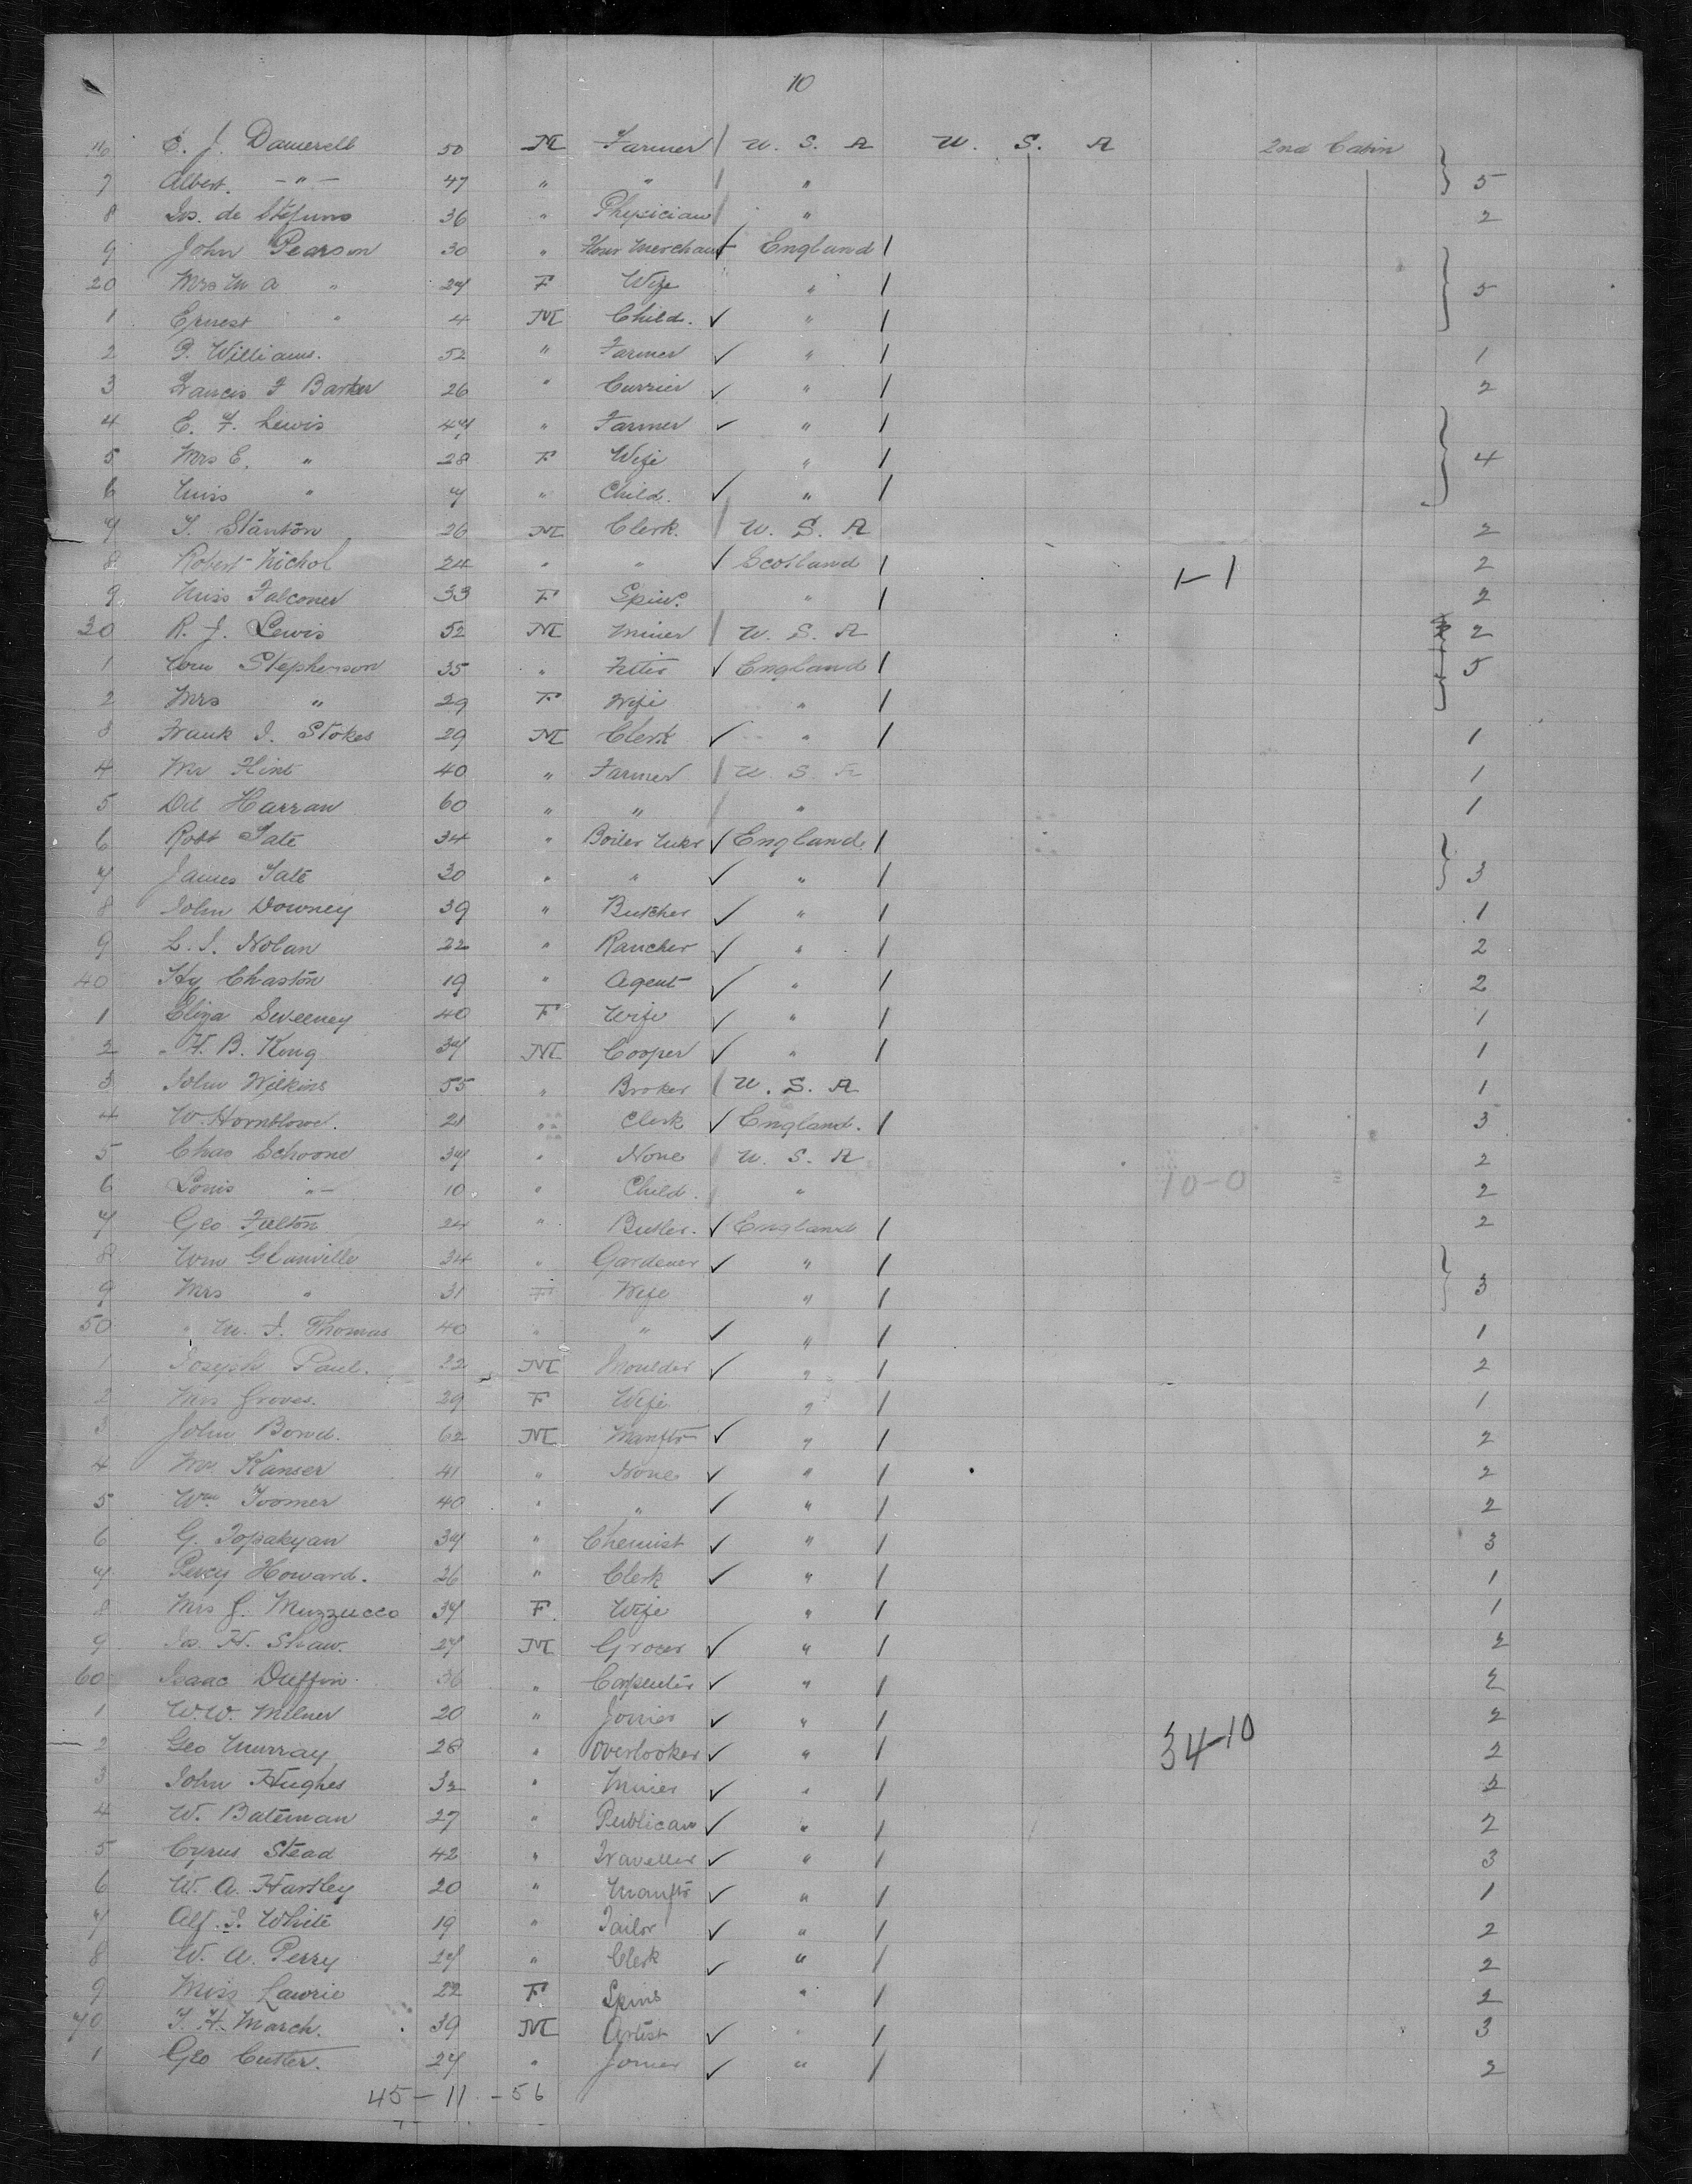 10
116 E. J. Damerell 50 M Farmer U. S. A U. S. A 2nd Cabin
7 Albert. - " - 47 " " " 5
8 Jos. de Stefuno 36 " Physician " 2
9 John Pearson 30 " Merchant England
20 Mrs M A " 27 F Wife " 5
1 Ernest " 4 M Child. "
2 P. Williams. 52 " Farmer " 1
3 Francis F Barker 26 " Currier " 2
4 E. F. Lewis 47 " Farmer "
5 Mrs E. " 28 F Wife " 4
6 Miss " 7 " Child. "
7 T. Stanton 26 M Clerk. U. S. A 2
8 Robert Nichol 24 " " Scotland 1-1 2
9 Miss Falconer 33 F Spin. " 2
30 R. J. Lewis 52 M Miner U. S. A 2
1 Wm Stephenson 35 " Fitter England 5
2 Mrs " 29 F Wife "
3 Frank J. Stokes 29 M Clerk " 1
4 Mr Flint 40 " Farmer U. S. A 1
5 Harran 60 " " " 1
6 Robt Tate 34 " Boiler Mkr England
7 James Tate 30 " " " 3
8 John Downey 39 " Butcher " 1
9 L. J. Nolan 22 " Rancher " 2
40 Hy Chaston 19 " Agent " 2
1 Eliza Sweeney 40 F Wife " 1
2 H. B. King 37 M Cooper " 1
3 John Wilkins 55 " Broker U. S. A 1
4 W. Hornblow. 21 " Clerk England. 3
5 Chas Schoone 37 " None U. S. A 2
6 Louis " 10 " Child. " 10-0 2
7 Geo Fulton 24 " Butler. England 2
8 Wm Glanville 34 " Gardener "
9 Mrs " 31 F Wife " 3
50 " M. J. Thomas 40 " " " 1
1 Joseph Paul. 22 M Moulder " 2
2 Mrs Groves. 29 F Wife " 1
3 John Bowd. 62 M Manftr " 2
4 Mr Kanser 41 " None " 2
5 Wm Toomer 40 " " " 2
6 G. Topakyan 37 " Chemist " 3
7 Percy Howard. 26 " Clerk " 1
8 Mrs G. Muzzucco 37 F. Wife " 1
9 Jos. H. Shaw. 27 M Grocer " 2
60 Isaac Duffin 36 " Carpenter " 2
1 W. W. Milner 20 " Joiner " 2
2 Geo Murray 28 " Overlooker " 34-10 2
3 John Hughes 32 " Miner " 2
4 W. Bateman 27 " Publican " 2
5 Cyrus Stead 42 " Traveller " 3
6 W. A. Hartley 20 " Manftr " 1
7 Alf. J. White 19 " Tailor " 2
8 W. A. Perry 27 " Clerk " 2
9 Miss Lawrie 22 F Spins " 2
70 T. H. March. 39 M Artist " 3
1 Geo Custer. 27 " Joiner " 2
45 - 11 - 56